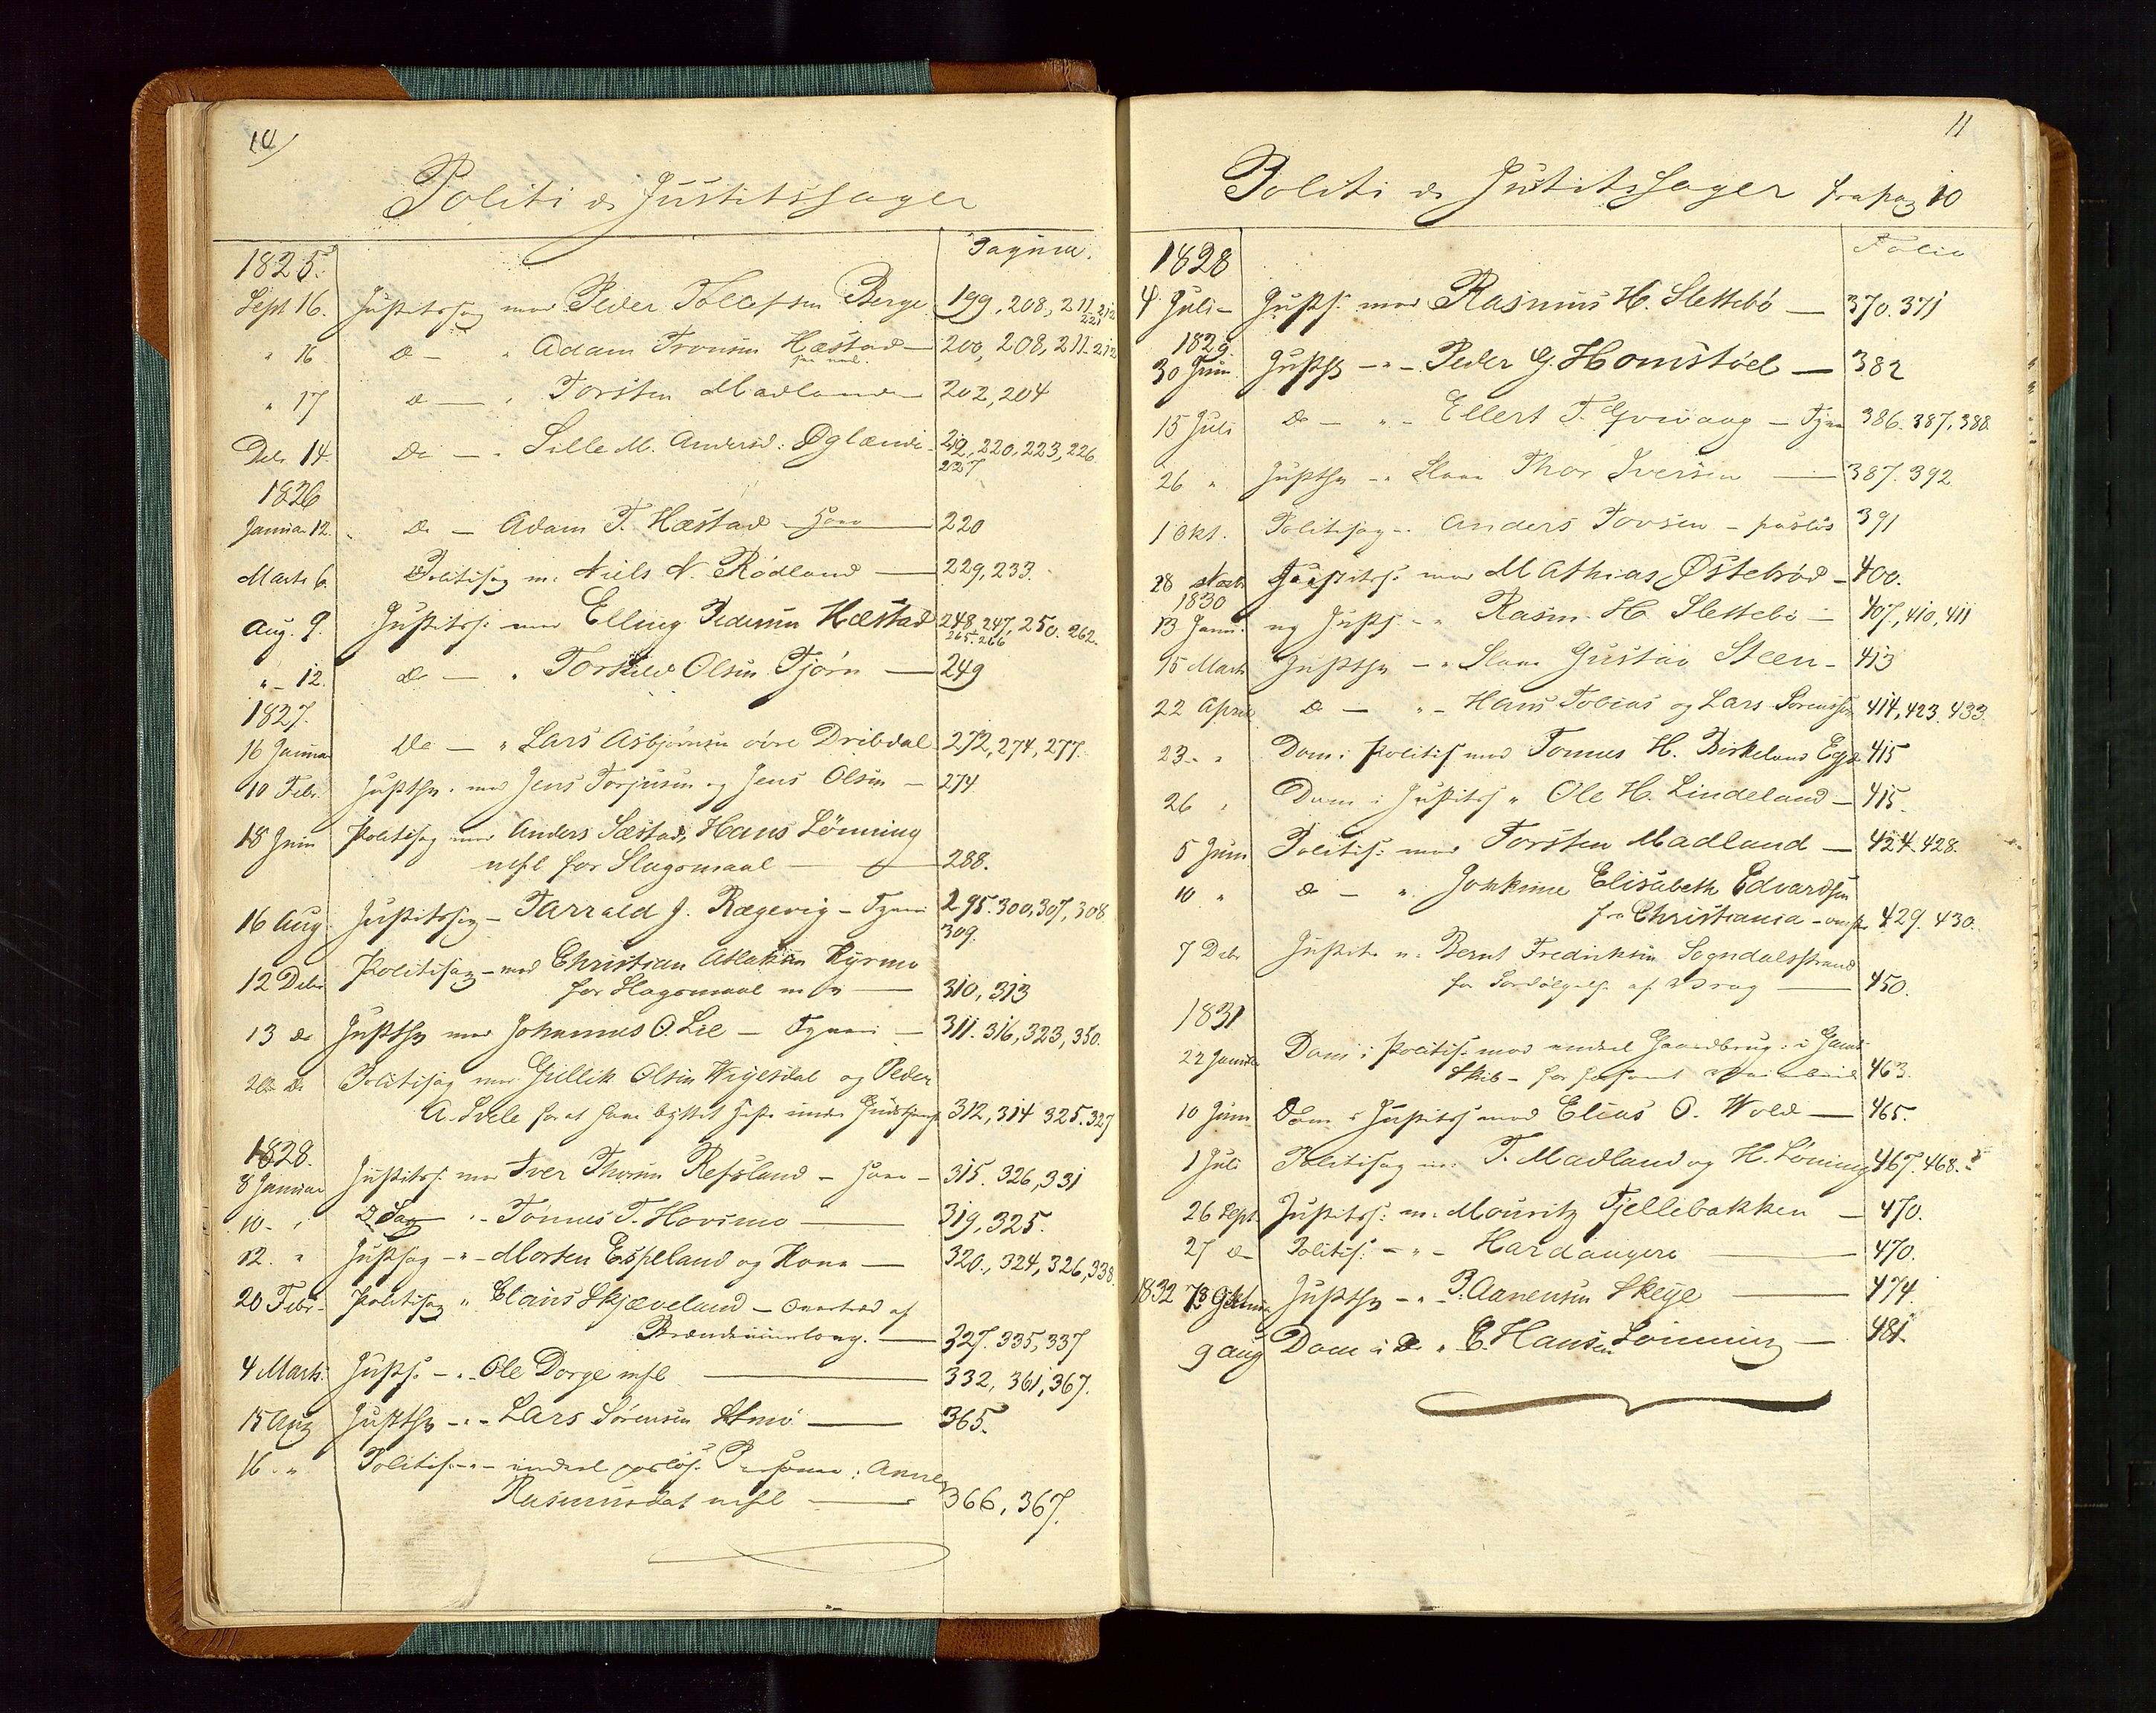 10
Politi & Justitssager
Pagina.
1825.
Sept 16. Justitssag mod Peder Tollefsen Berge 199, 208, 211-212 221
" 16 do — " Adam Tronsen Hæstad — 200, 208, 211-212
" 17 do — " Torsten Madland — 202, 204
Debr 14. do — " Sille M. Andersd: Øglænd 219, 220, 223, 226
227
1826
Januar 12. do — Adam T. Hæstad — 220
Marts 6. Politisag m. Niels N. Rødland — 229, 233.
Aug. 9. Justitss: mod Elling Pedersen Hæstad 248, 247, 250. 262.
265. 266
" — 12. do — " Torkild Olsen Tjørn — 249
1827.
16 Januar do — " Lars Asbjørnsen øvre Dribdal 272, 274, 277.
10 Febr. Justths. mod Jens Torjusen og Jens Olsen — 274
18 Juni Politisag mod Anders Sæstad, Hans Lønning
mfl for Slagsmaal — 288.
16 Aug Justitssag — Tarrald J. Rægevig — Tyveri 295. 300, 307, 308
309.
12 Debr Politisag — mod Christian Aslaksen Kyrmo
for Slagsmaal m v — 310, 313
13 do Justths mod Johannes O. Lie — Tyveri — 311. 316, 323, 350.
do Politisag mod Gullik Olsen Werjesdal og Peder
A. for at have byttet Heste under Gudstjeneste 312, 314 325. 327
1828.
8 Januar Justitss: mod Iver Thorsen Refsland — 315. 326, 331
10 — " do Sag " — Tønnes T. Hovsmo — 319, 325.
12. " Justsag — " — Morten Espeland og Kone — 320., 324, 326, 338.
20 Febr — Politisag " Claus Skjæveland — Overtræd af
Brændeviinslovg. — 327. 335, 337
4 Marts. Justs. — " — Ole Dorge mfl — 332, 361, 367.
15 Aug Justths — " — Lars Sørensen — 365.
16 — " Politis — " — endeel pasløse Personer: Anne
Rasmusdat mfl — 366, 367.
11
Politi & Justitssager fra pag 10
Folio
1828
4. Juli — Justs. mod Rasmus H. Slettebø — 370. 371
1829
30 Juni. Justss — " — Peder G. Homstøel — 382
15 Juli do — " — Ellert T. — Tyv 386. 387, 388.
26 " Justths — " Slave Thor Iversen — 387. 392
1 Okt. Politisag — " Anders Tovsen — pasløs 391
28 Justitss: mod Mathias Østebrød — 400.
1830
13 Janu. ny Justs. — " Rasm. H. Slettebø — 407, 410, 411
15 Marts Justths — " Slave Gustav Steen — 413
22 April do — " — Hans Tobias og Lars Sørensen 414, 423, 433.
23 — " Dom i Politis mod Tønnes H. Birkeland 415
26 " Dom i Justitss " Ole H. Lindeland — 415.
5 Juni Politis: mod Torsten Madland — 424. 428.
10 " do — " Elisabeth Edvardsen
fra Christiania — 429. 430.
7 Debr Justits m. Bernt Fredriksen Sogndalsstrand
for af Vrag — 450.
1831
22 Januar Dom i Politis: mod endeel Gaardbrug: i
Skib — for forsømt Veiarbeid 463.
10 Juni Dom i Justitss mod Elias O. Wold — 465.
1 Juli Politisag m. T. Madland og H. Lønning 467. 468.
26 Sept Justitss: m. Mouritz Fjellebakken — 470.
27 do Politis: — " — Hardangere — 470.
1832 Justths — " — P. Aanensen Skeije — 474
9 aug Dom i do " E. Hansen Lønning — 481